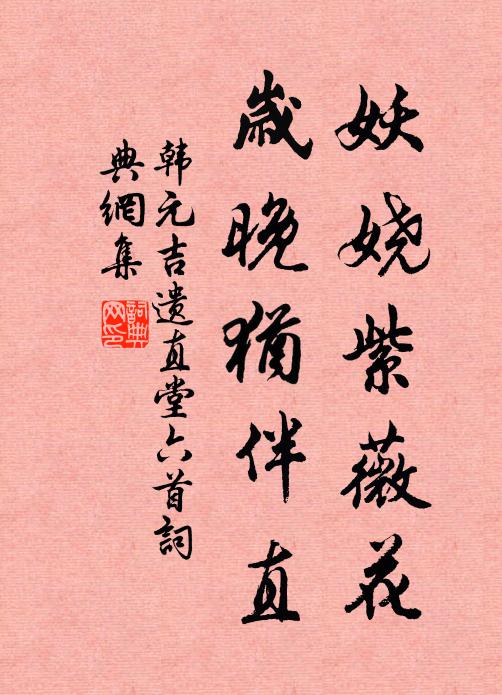 妖娆紫薇花
歲晚猶伴直
韩元吉遗直堂六首詞
典網集
詞典網印